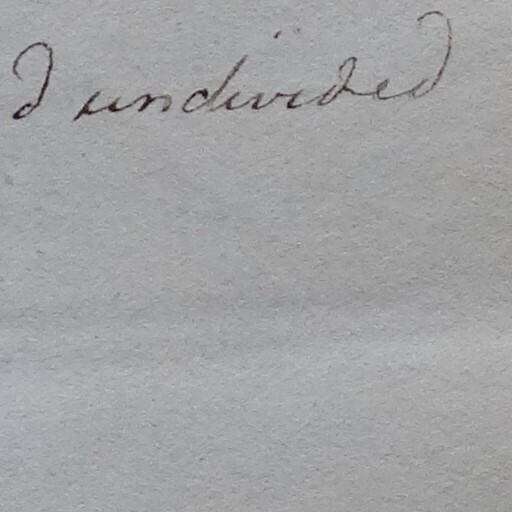 d undivided